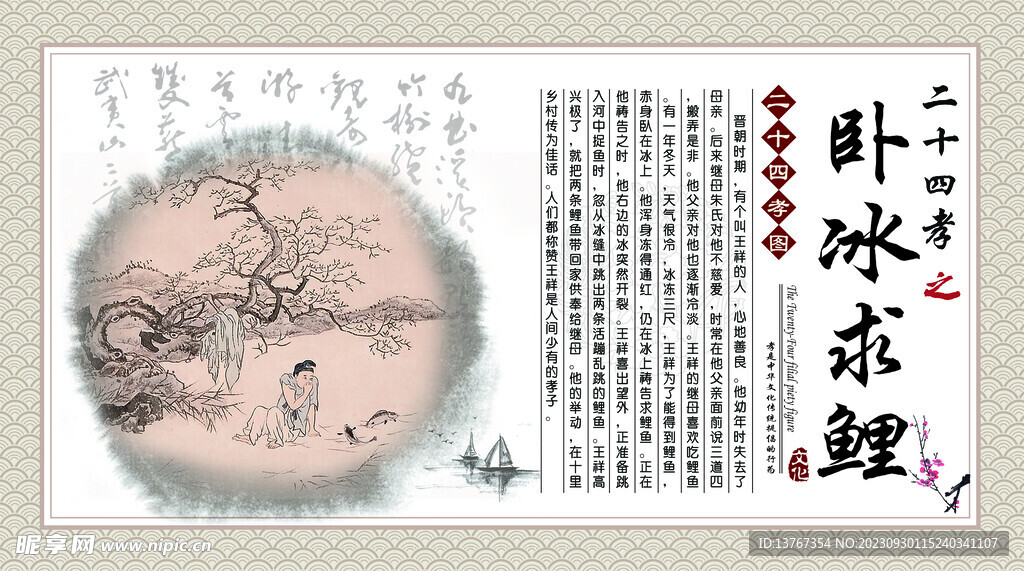 二十四孝之
卧冰求鲤
二十四孝图
The Twenty-Four filial piety figure
孝是中华文化传统提倡的行为
文化
晋朝时期,有个叫王祥的人,心地善良。他幼年时失去了
母亲。后来继母朱氏对他不慈爱,时常在他父亲面前说三道四
,搬弄是非。他父亲对他也逐渐冷淡。王祥的继母喜欢吃鲤鱼
。有一年冬天,天气很冷,冰冻三尺,王祥为了能得到鲤鱼,
赤身卧在冰上。他浑身冻得通红,仍在冰上祷告求鲤鱼。正在
他祷告之时,他右边的冰突然开裂。王祥喜出望外,正准备跳
入河中捉鱼时,忽从冰缝中跳出两条活蹦乱跳的鲤鱼。王祥高
兴极了,就把两条鲤鱼带回家供奉给继母。他的举动,在十里
乡村传为佳话。人们都称赞王祥是人间少有的孝子。
武夷山
昵享网 www.nipic.cn
ID:13767354 NO:20230930115240341107